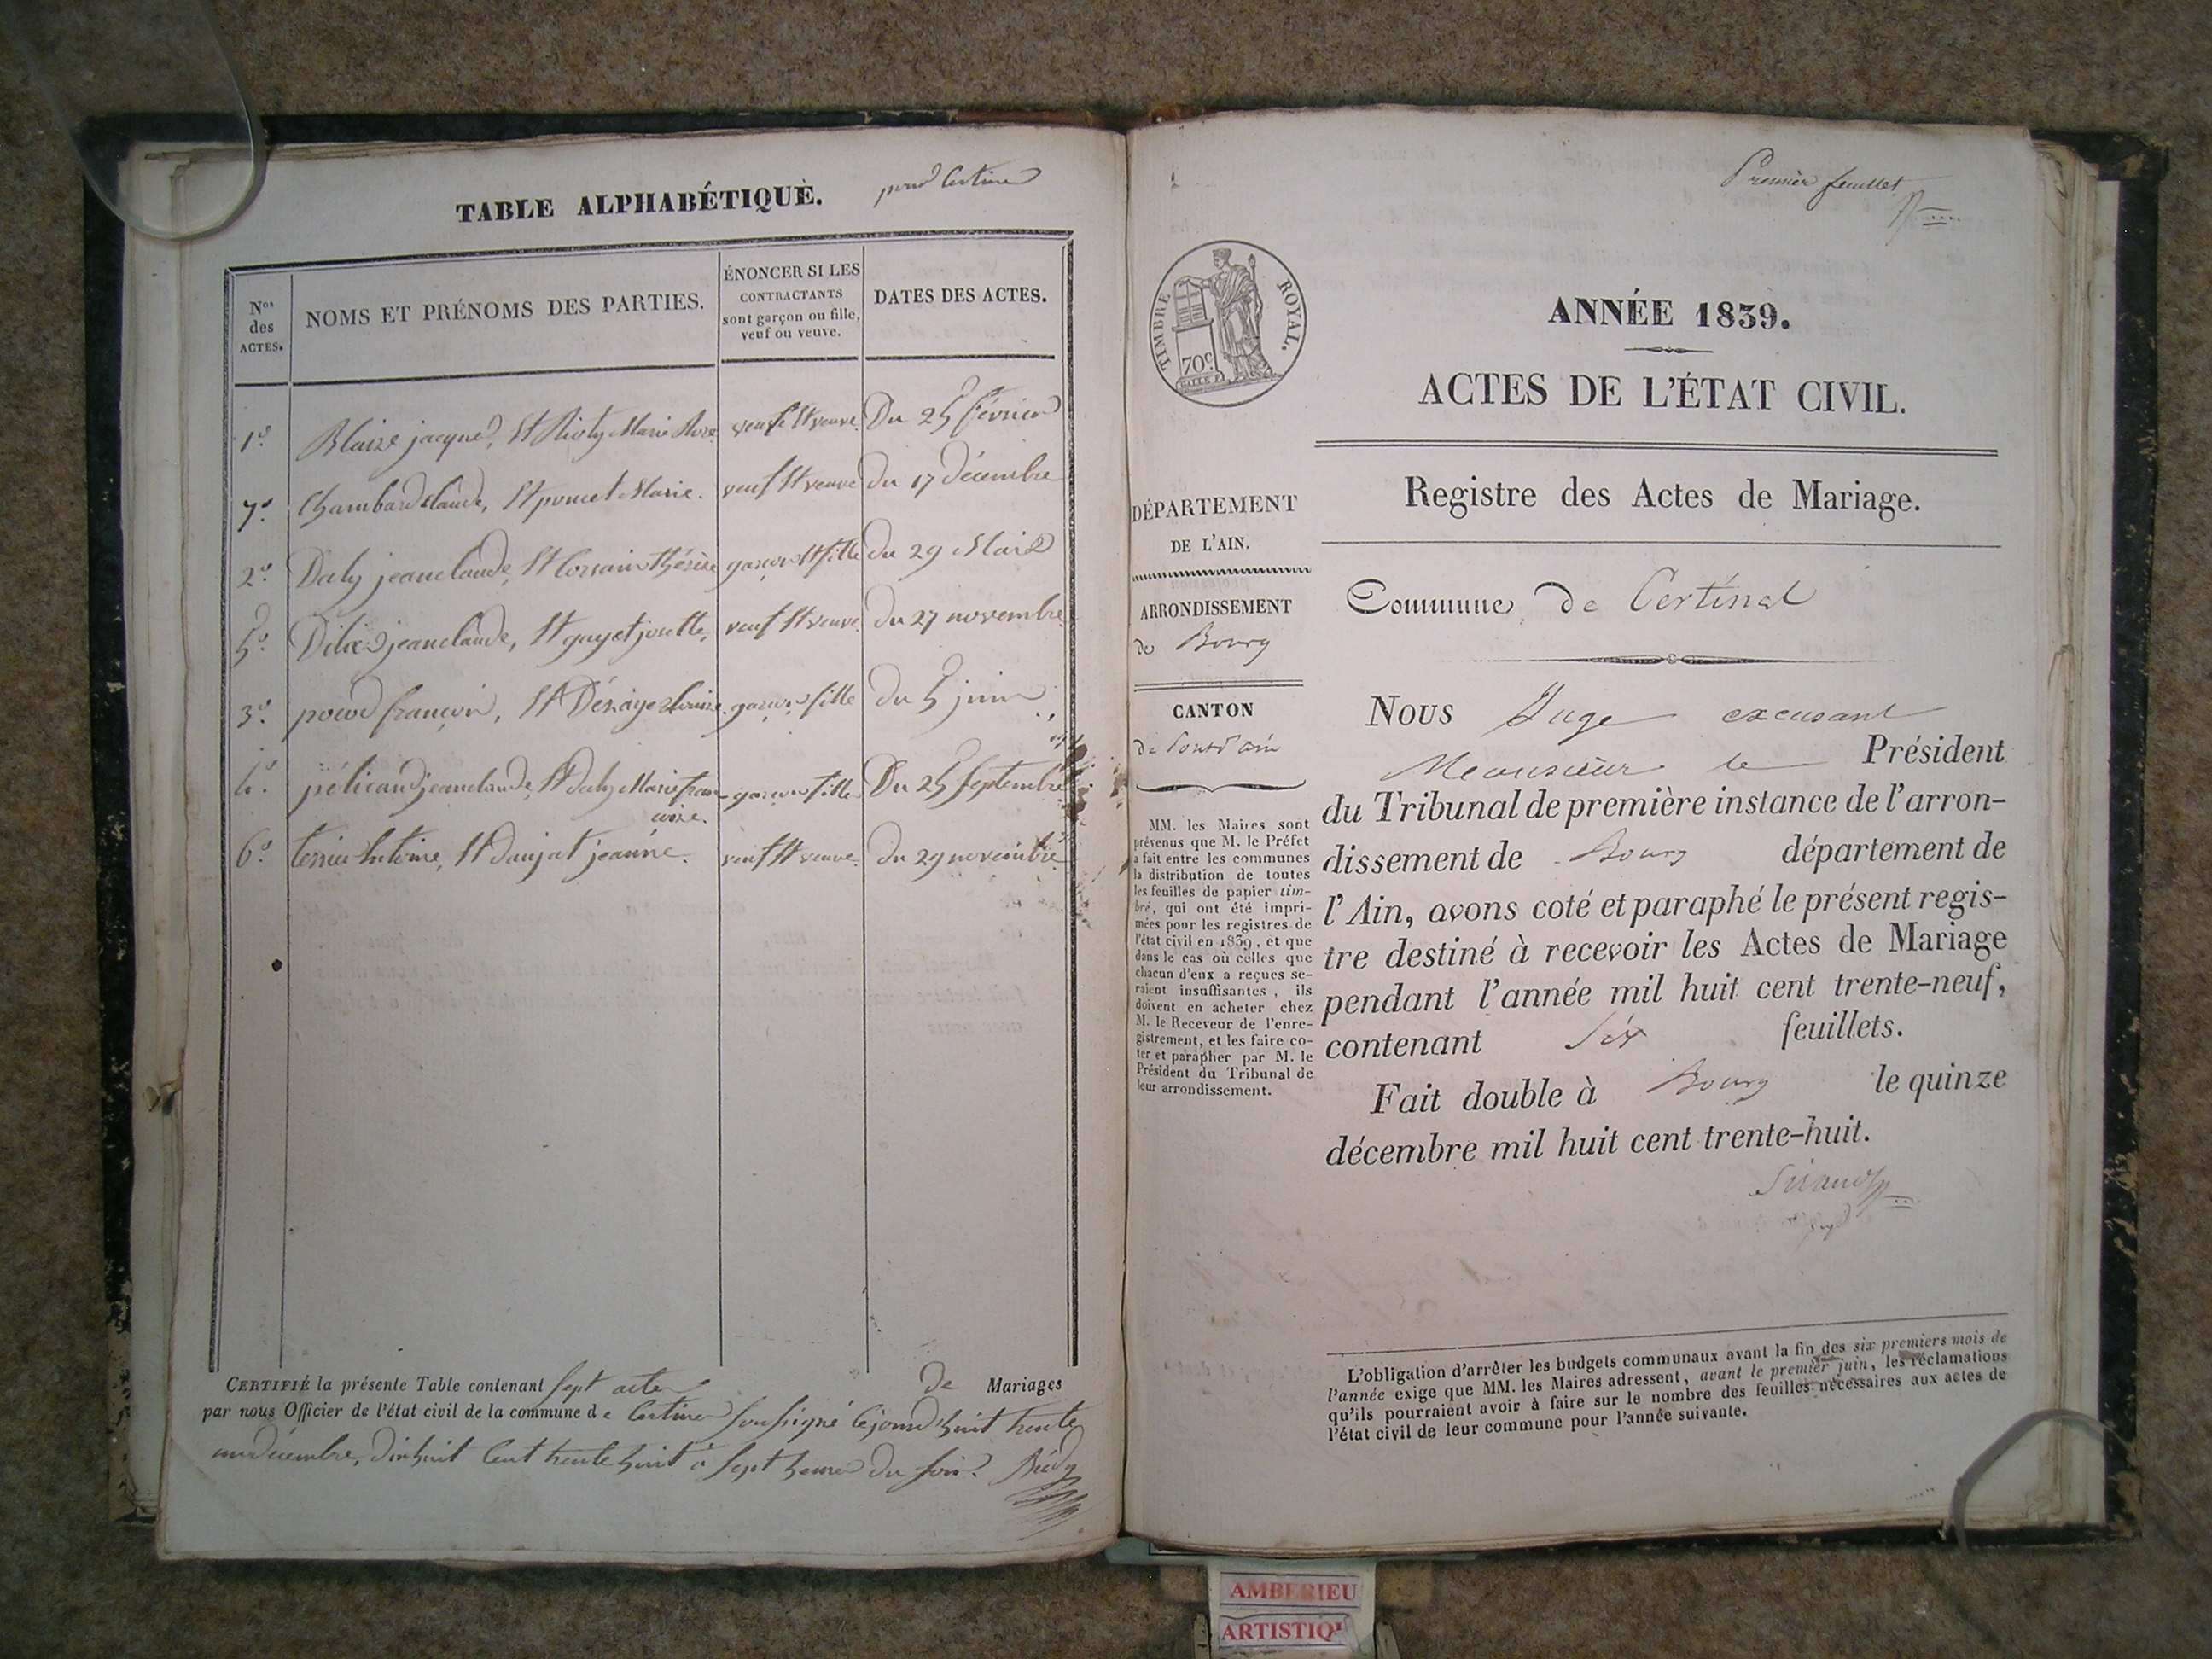 TABLE ALPHABÉTIQUE.
Nos des ACTES.
NOMS ET PRÉNOMS DES PARTIES.
ÉNONCER SI LES
CONTRACTANTS
sont garçon ou fille,
veuf ou veuve.
DATES DES ACTES.
1º. Blaize jacques, et Marie veuf et veuve. Du 25 février
7º. Chambard claude, et poncet Marie. veuf et veuve du 17 décembre
2º. Daly jeanclaude, et thérèse garçon et fille du 29 Mars
5º. jeanclaude, et guyet josette, veuf et veuve. du 27 novembre
3º. françois, et garçon fille du 5 juin
4º. jeanclaude, et Daly Marie fran- garçon fille Du 25 Septembre
çoise.
6º. Antoine, et Daujat jeanne. veuf et veuve. du 29 novembre
CERTIFIÉ la présente Table contenant sept actes de Mariages
par nous Officier de l'état civil de la commune de soussigné le jour d'huit trente
un décembre, dixhuit Cent trente huit à sept heures du soir.
Premier feuillet
TIMBRE ROYAL.
70c.
ANNÉE 1839.
ACTES DE L'ÉTAT CIVIL.
Registre des Actes de Mariage.
DÉPARTEMENT
DE L'AIN.
ARRONDISSEMENT
de Bourg
CANTON
de Pont d'ain
MM. les Maires sont
prévenus que M. le Préfet
a fait entre les communes
la distribution de toutes
les feuilles de papier tim-
bré, qui ont été impri-
mées pour les registres de
l'état civil en 1839, et que
dans le cas où celles que
chacun d'eux a reçues se-
raient insuffisantes, ils
doivent en acheter chez
M. le Receveur de l'enre-
gistrement, et les faire co-
ter et parapher par M. le
Président du Tribunal de
leur arrondissement.
Commune de Certines
Nous Juge excusant
Monsieur le Président
du Tribunal de première instance de l'arron-
dissement de Bourg département de
l'Ain, avons coté et paraphé le présent regis-
tre destiné à recevoir les Actes de Mariage
pendant l'année mil huit cent trente-neuf,
contenant Six feuillets.
Fait double à Bourg le quinze
décembre mil huit cent trente-huit.
L'obligation d'arrêter les budgets communaux avant la fin des six premiers mois de
l'année exige que MM. les Maires adressent, avant le premier juin, les réclamations
qu'ils pourraient avoir à faire sur le nombre des feuilles nécessaires aux actes de
l'état civil de leur commune pour l'année suivante.
AMBERIEU
ARTISTIQ